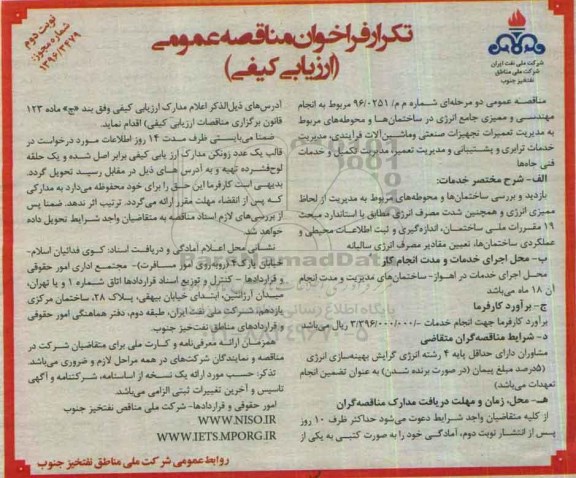 تکرار فراخوان مناقصه عمومی
(ارزیابی کیفی)
نوبت دوم
شماره مجوز:
۱۳۹۶/۳۴۷۹
شرکت ملی نفت ایران
شرکت ملی مناطق
نفتخیز جنوب
مناقصه عمومی دو مرحله‌ای شماره م م/ ۹۶/۰۲۵۱ مربوط به انجام
مهندسی و ممیزی جامع انرژی در ساختمان‌ها و محوطه‌های مربوط
به مدیریت تعمیرات تجهیزات صنعتی وماشین‌آلات فرآیندی، مدیریت
خدمات ترابری و پشتیبانی و مدیریت تعمیر، مدیریت تکمیل و خدمات
فنی چاه‌ها
الف- شرح مختصر خدمات:
بازدید و بررسی ساختمان‌ها و محوطه‌های مربوط به مدیریت از لحاظ
ممیزی انرژی و همچنین شدت مصرف انرژی مطابق با استاندارد مبحث
۱۹ مقررات ملی ساختمان، اندازه‌گیری و ثبت اطلاعات محیطی و
عملکردی ساختمان‌ها، تعیین مقادیر مصرف انرژی سالیانه
ب- محل اجرای خدمات و مدت انجام کار
محل اجرای خدمات در اهواز- ساختمان‌های مدیریت و مدت انجام
آن ۱۸ ماه می‌باشد
ج- برآورد کارفرما
برآورد کارفرما جهت انجام خدمات -/۳/۳۹۶/۰۰۰/۰۰۰ ریال می‌باشد
د- شرایط مناقصه‌گران متقاضی
مشاوران دارای حداقل پایه ۴ رشته انرژی گرایش بهینه‌سازی انرژی
(۵درصد مبلغ پیمان (در صورت برنده شدن) به عنوان تضمین انجام
تعهدات می‌باشد)
هـ- محل، زمان و مهلت دریافت مدارک مناقصه‌گران
از کلیه متقاضیان واجد شرایط دعوت می‌شود حداکثر ظرف ۱۰ روز
پس از انتشار نوبت دوم، آمادگی خود را به صورت کتبی به یکی از
آدرس‌های ذیل‌الذکر اعلام مدارک ارزیابی کیفی وفق بند «ج» ماده ۱۲۳
قانون برگزاری مناقصات ارزیابی کیفی) اقدام نماید.
ضمنا می‌بایستی ظرف مدت ۱۴ روز اطلاعات مورد درخواست در
قالب یک عدد زونکن مدارک ارزیابی کیفی برابر اصل شده و یک حلقه
لوح‌فشرده تهیه و به آدرس های ذیل در مقابل رسید تحویل گردد.
بدیهی است کارفرما این حق را برای خود محفوظ می‌دارد به مدارکی
که پس از انقضاء مهلت مقرر ارائه می‌گردد، ترتیب اثر ندهد. ضمنا پس
از بررسی‌های لازم اسناد مناقصه به متقاضیان واجد شرایط تحویل داده
خواهد شد.
نشانی محل اعلام آمادگی و دریافت اسناد: کوی فدائیان اسلام-
خیابان پارک۴ (روبه‌روی امور مسافرت)- مجتمع اداری امور حقوقی
و قراردادها - کنترل و توزیع اسناد قراردادها اتاق شماره ۱ و یا تهران،
میدان آرژانتین، ابتدای خیابان بیهقی، پلاک ۲۸، ساختمان مرکزی
یازدهم، شرکت ملی نفت ایران، طبقه دوم، دفتر هماهنگی امور حقوقی
و قراردادهای مناطق نفت‌خیز جنوب.
همزمان ارائه معرفی‌نامه و کارت ملی برای متقاضیان شرکت در
مناقصه و نمایندگان شرکت‌های در همه مراحل لازم و ضروری می‌باشد.
تذکر: حسب مورد ارائه یک نسخه از اساسنامه، شرکتنامه و آگهی
تاسیس و آخرین تغییرات ثبتی الزامی می‌باشد.
امور حقوقی و قراردادها- شرکت ملی مناقص نفتخیز جنوب
WWW.NISO.IR
WWW.IETS.MPORG.IR
روابط عمومی شرکت ملی مناطق نفتخیز جنوب